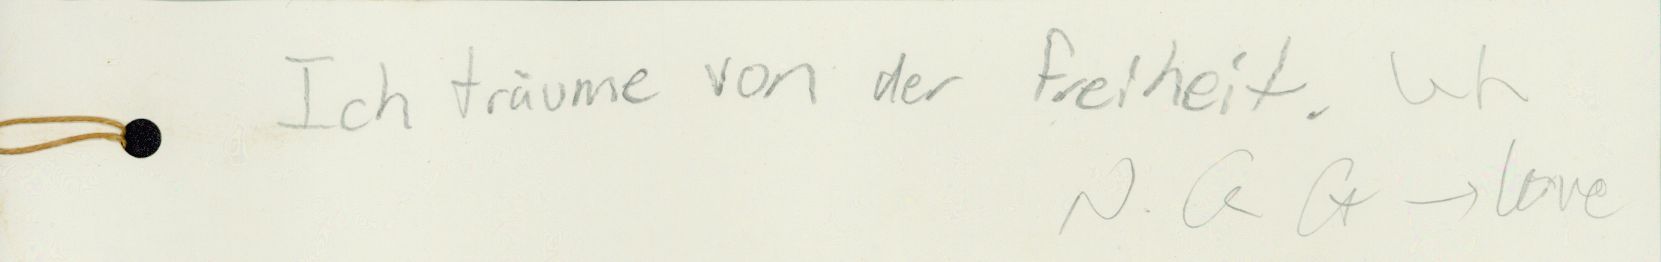 Ich träume von der Freiheit.
N. → love